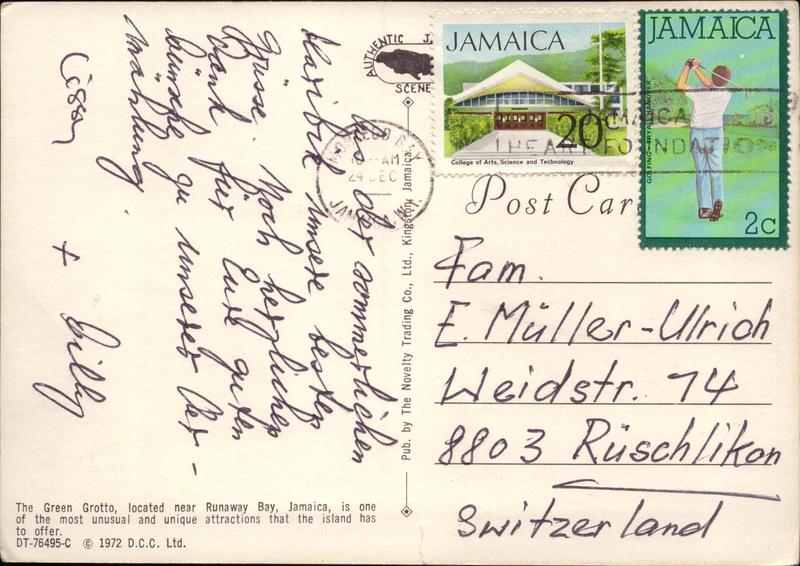 Aus der sommerlichen
Karibik unsere besten
Grüsse. Noch herzlichen
Dank für Eure guten
Wünsche zu unserer Ver-
mählung.
+ Billy
AUTHENTIC
SCENE
JAMAICA
20c
College of Arts, Science and Technology
JAMAICA
GOLFING
2c
AM
24 DEC
HEART FOUNDATION
Post Car
Fam.
E. Müller-Ulrich
Weidstr. 14
8803 Rüschlikon
Switzerland
Pub. by The Novelty Trading Co., Ltd., Kingston, Jamaica
The Green Grotto, located near Runaway Bay, Jamaica, is one
of the most unusual and unique attractions that the island has
to offer.
DT-76495-C © 1972 D.C.C. Ltd.